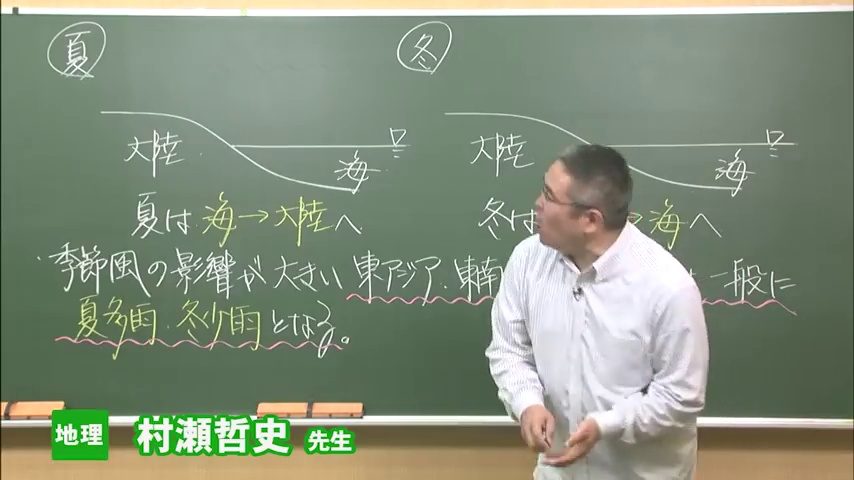 夏
冬
大陸
海
大陸
海
夏は 海→大陸へ
冬は →海へ
季節風の影響が大きい東アジア・東南 は一般に
夏多雨・冬少雨となる。
地理 村瀬哲史 先生